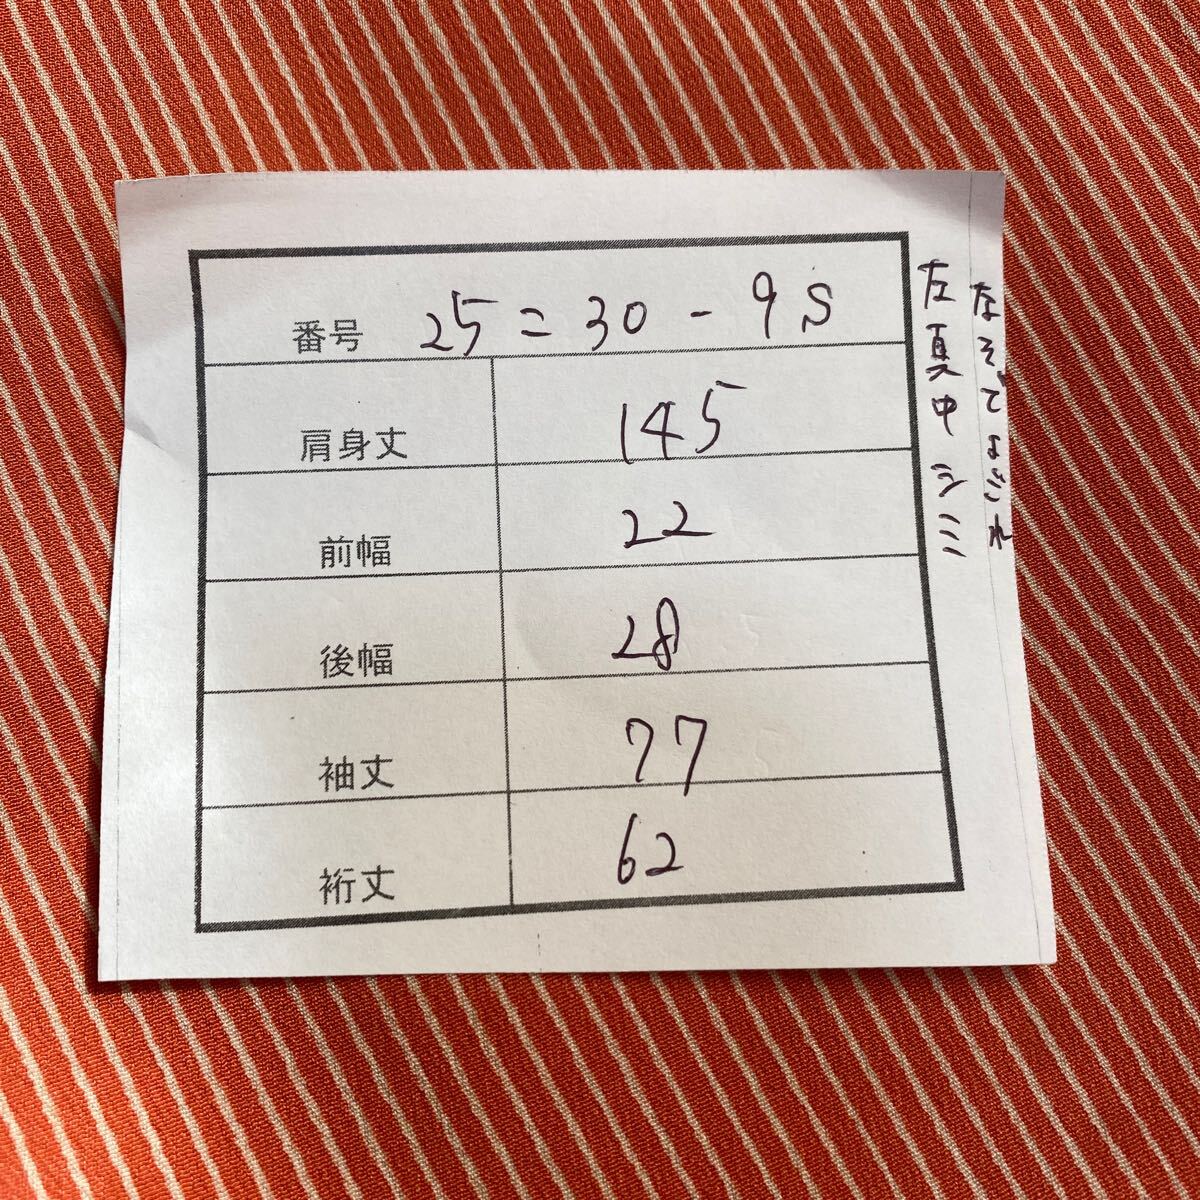 番号 25=30-9S
肩身丈 145
前幅 22
後幅 28
袖丈 77
裄丈 62
左真中シミ
そでよごれ